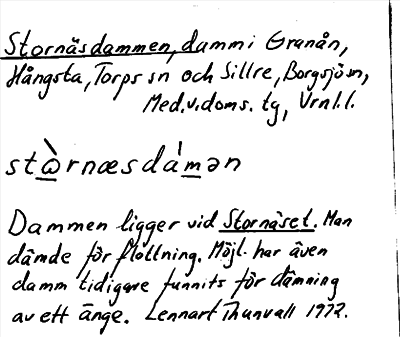 Stornäsdammen, damm i Granån,
Hångsta, Torps sn och Sillre, Borgsjö sn,
Med. v. doms. tg, Vrnl. l.
stὼrnæsdámən
Dammen ligger vid Stornäset. Man
dämde för flottning. Möjl. har även
damm tidigare funnits för dämning
av ett änge. Lennart Thunvall 1972.